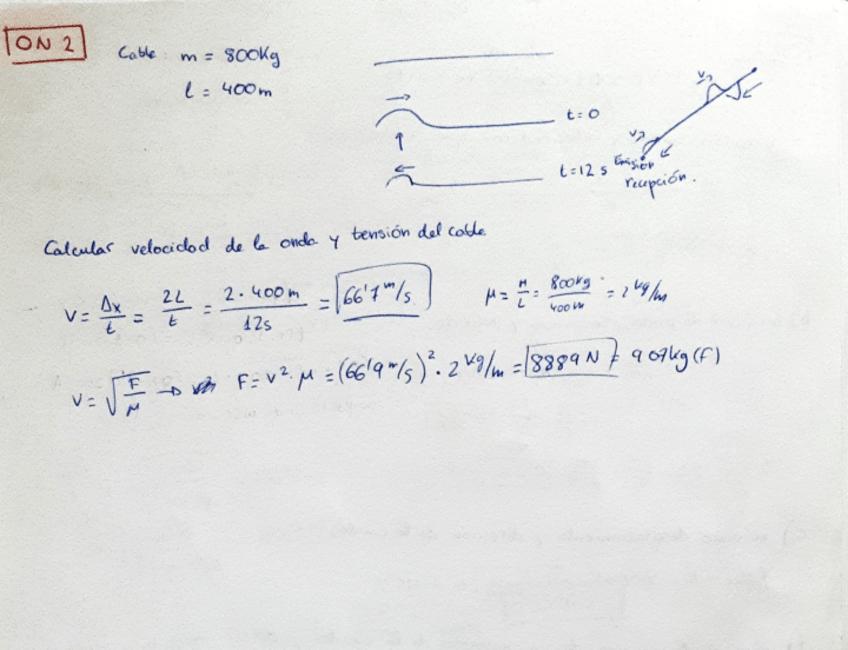 ON 2
Cable m = 800Kg
l = 400m
t=0
t=12 s
v
v
Emisión
recepción.
Calcular velocidad de la onda y tensión del cable
v = Δx/t = 2L/t = 2·400m/12s = 66'7 m/s
μ = M/L = 800kg/400m = 2 kg/m
v = √(F/μ) → F = v²·μ = (66'9 m/s)²·2 kg/m = 8889N = 907kg (F)